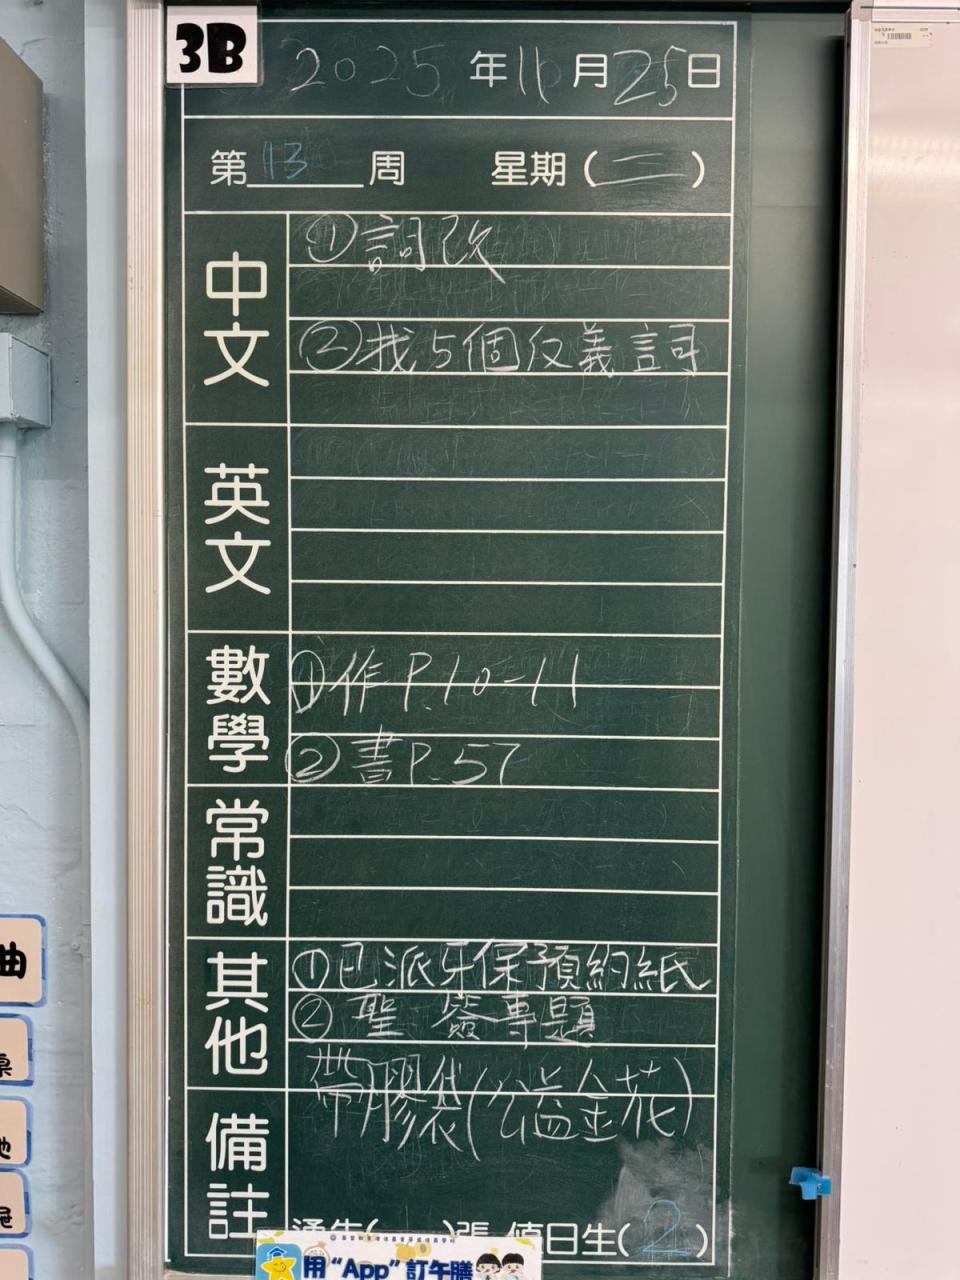 3B
2025年11月25日
第13周 星期(二)
中文
①詞改
②找5個反義詞
英文
數學
①作P.10-11
②書P.57
常識
其他
①已派牙保預約紙
②聖 簽專題
帶膠袋(公益金花)
備註
通告( )張 值日生(2)
用“App”訂午膳
曲